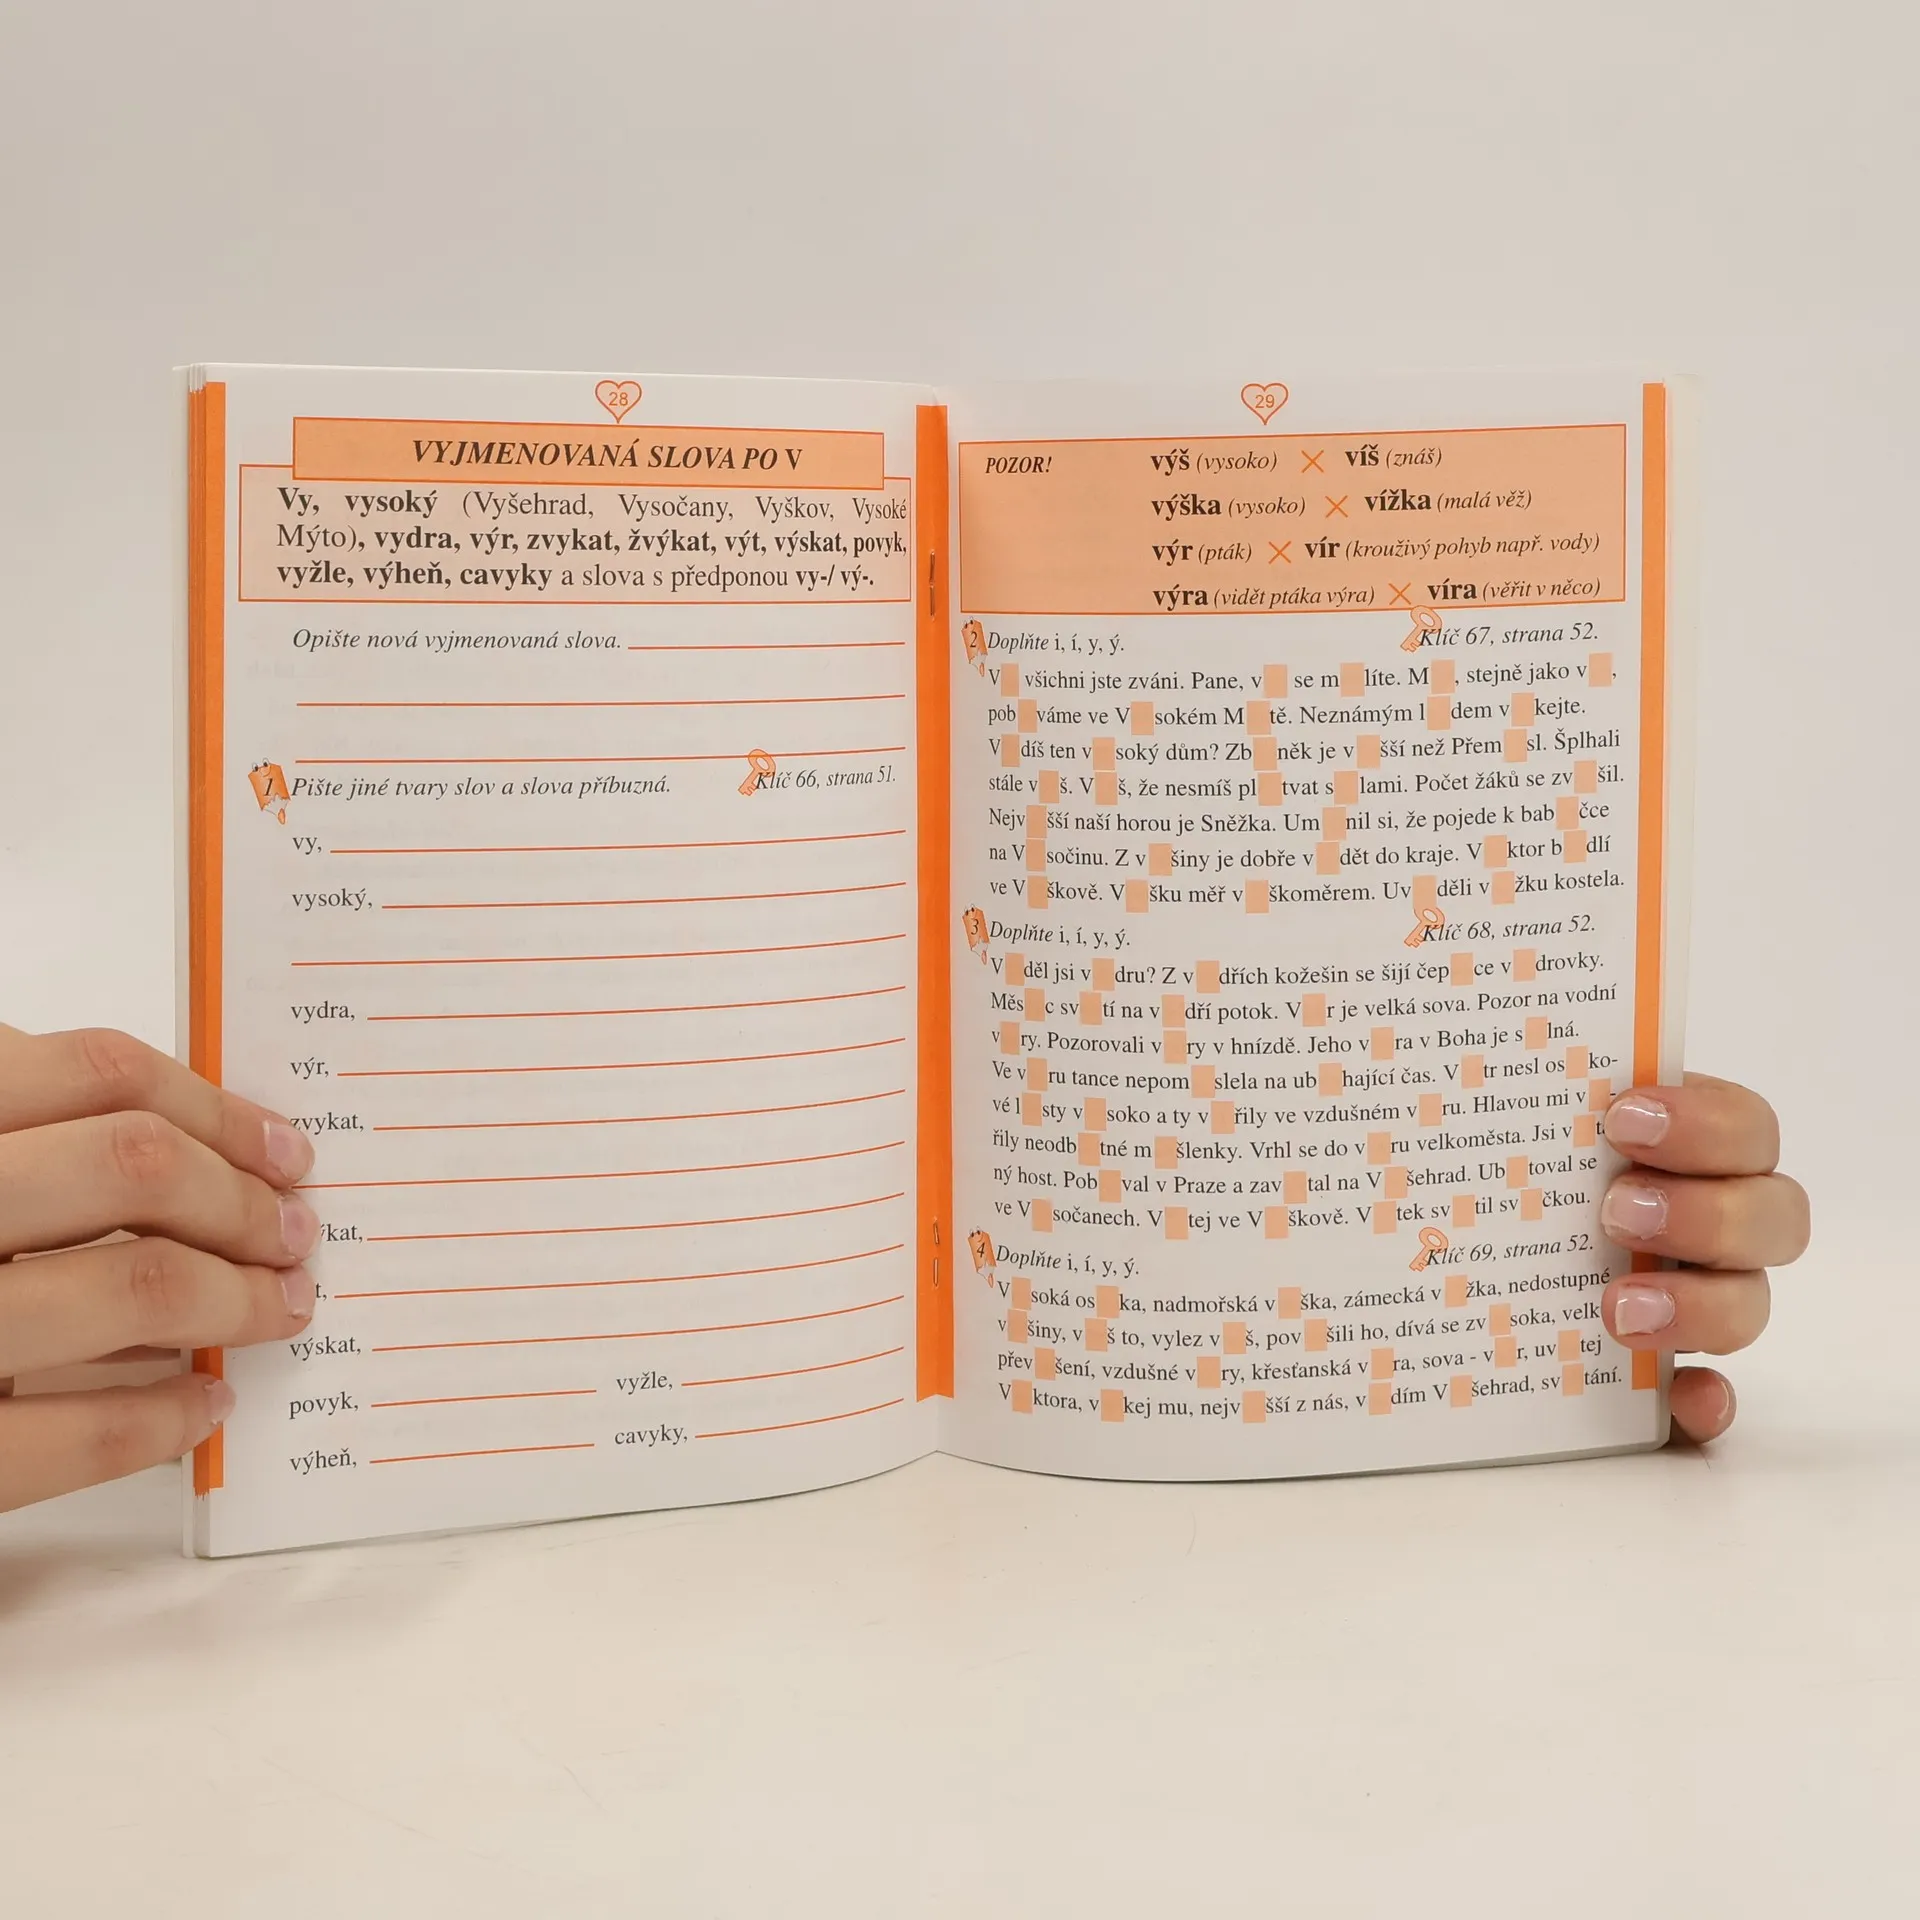 28
VYJMENOVANÁ SLOVA PO V
Vy, vysoký (Vyšehrad, Vysočany, Vyškov, Vysoké
Mýto), vydra, výr, zvykat, žvýkat, výt, výskat, povyk,
vyžle, výheň, cavyky a slova s předponou vy-/ vý-.
Opište nová vyjmenovaná slova.
1 Pište jiné tvary slov a slova příbuzná. Klíč 66, strana 51.
vy,
vysoký,
vydra,
výr,
zvykat,
výskat,
povyk, vyžle,
výheň, cavyky,
29
POZOR! výš (vysoko) × víš (znáš)
výška (vysoko) × vížka (malá věž)
výr (pták) × vír (krouživý pohyb např. vody)
výra (vidět ptáka výra) × víra (věřit v něco)
2 Doplňte i, í, y, ý. Klíč 67, strana 52.
V všichni jste zváni. Pane, v se m líte. M , stejně jako v ,
pob váme ve V sokém M tě. Neznámým l dem v kejte.
V díš ten v soký dům? Zb něk je v šší než Přem sl. Šplhali
stále v š. V š, že nesmíš pl tvat s lami. Počet žáků se zv šil.
Nejv šší naší horou je Sněžka. Um nil si, že pojede k bab čce
na V sočinu. Z v šiny je dobře v dět do kraje. V ktor b dlí
ve V škově. V šku měř v škoměrem. Uv děli v žku kostela.
3 Doplňte i, í, y, ý. Klíč 68, strana 52.
V děl jsi v dru? Z v dřích kožešin se šijí čep ce v drovky.
Měs c sv tí na v dří potok. V r je velká sova. Pozor na vodní
v ry. Pozorovali v ry v hnízdě. Jeho v ra v Boha je s lná.
Ve v ru tance nepom slela na ub hající čas. V tr nesl os ko-
vé l sty v soko a ty v řily ve vzdušném v ru. Hlavou mi v -
řily neodb tné m šlenky. Vrhl se do v ru velkoměsta. Jsi v
ný host. Pob val v Praze a zav tal na V šehrad. Ub toval se
ve V sočanech. V tej ve V škově. V tek sv til sv čkou.
4 Doplňte i, í, y, ý. Klíč 69, strana 52.
V soká os ka, nadmořská v ška, zámecká v žka, nedostupné
v šiny, v š to, vylez v š, pov šili ho, dívá se zv soka, velk
přev šení, vzdušné v ry, křesťanská v ra, sova - v r, uv tej
V ktora, v kej mu, nejv šší z nás, v dím V šehrad, sv tání.